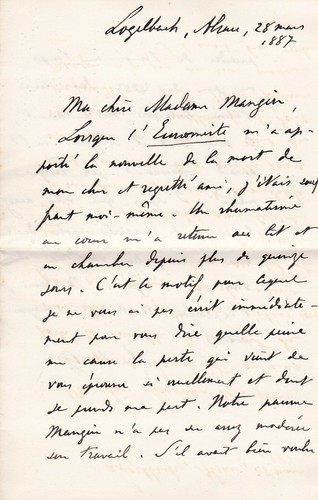 Logelbach, Alsace, 28 mars
1887
Ma chère Madame Mangin,
Lorsque l'Économiste m'a ap-
porté la nouvelle de la mort de
mon cher et regretté ami, j'étais souf
frant moi-même. Un rhumatisme
au cœur m'a retenu au lit et
en chambre depuis plus de quinze
jours. C'est le motif pour lequel
je ne vous ai pas écrit immédiate-
ment pour vous dire quelle peine
me cause la perte qui vient de
vous éprouver si cruellement et dont
je prends ma part. Notre pauvre
Mangin n'a pas su assez modérer
son travail. S'il avait bien voulu